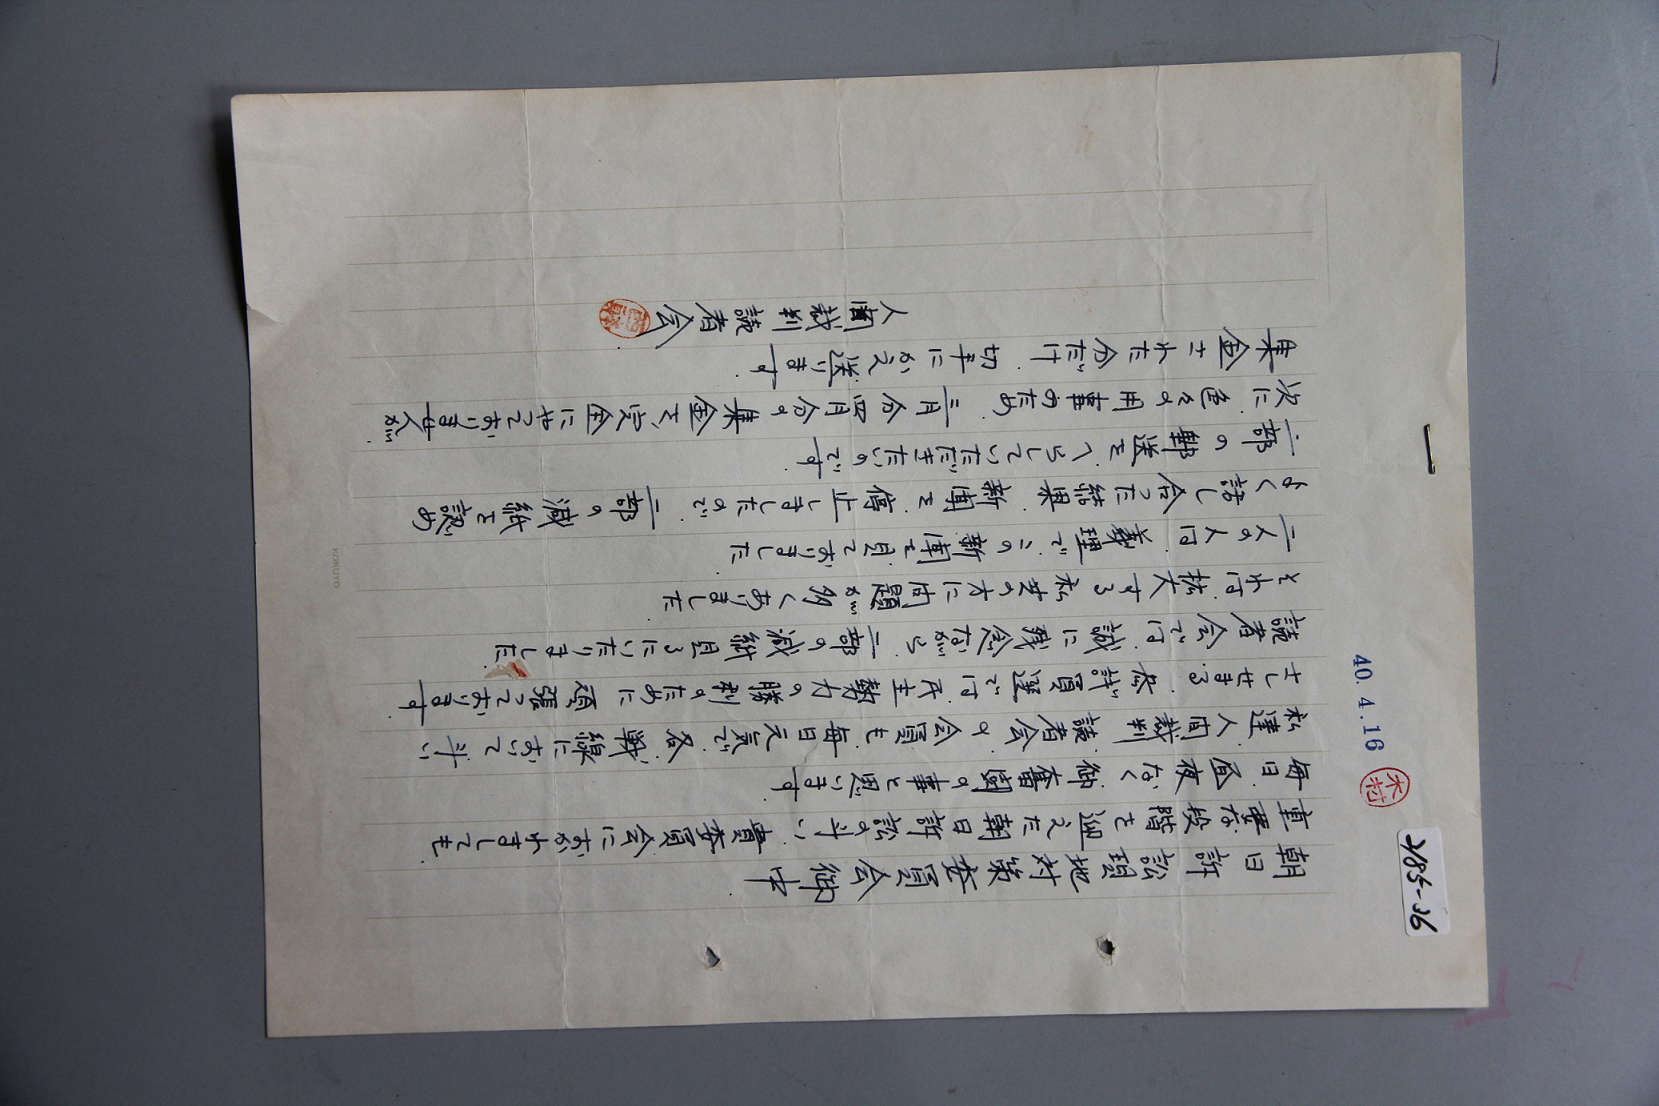 朝日訴訟現地対策委員会御中
重要な段階を迎えた朝日訴訟の斗い、貴委員会におかれましても、
毎日昼夜なく御奮闘の事と思います。
私達人間裁判読者会の会員も毎日元気で各戦線において斗い
さしせまる、参議員選では民主勢力の勝利のために頑張っております。
読者会では誠に残念ながら二部の減紙見るにいたりました。
それは拡大する私達の方に問題が多くありました
二人の人は義理でこの新聞を見ておりました。
よく話し合った結果新聞を停止しましたので、二部の減紙を認め
二部の郵送をへらしていただきたいのです。
次に色々の用事のため、三月分四月分の集金を完全にやっておりませんが
集金された分だけ切手にかえ送ります。
人間裁判読者会
40.4.16
木村
2185-36
KOKUYO